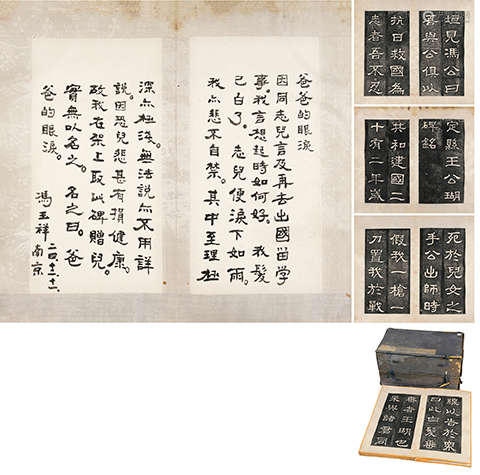 爸爸的眼淚
因同志兒言及再去出國留學
事。我言想起時如何好。我髮
已白了。志兒便淚下如雨。
我亦悲不自禁。其中至理極
深亦極淺。無法說亦不用詳
說。因恐兒悲甚有損健康。
故我在架上取此碑贈兒。
實無以名之。名之曰。爸
爸的眼淚。
馮玉祥
南京
垣見馮公曰
與公俱以
抗日救國為
志者吾不忍
定縣王公瑚
碑銘
共和建國二
十有二年歲
死於兒女之
手公出師時
假我一槍一
刀置我於戰
線以告於眾
曰此白髮
者王瑚也
與諸君同